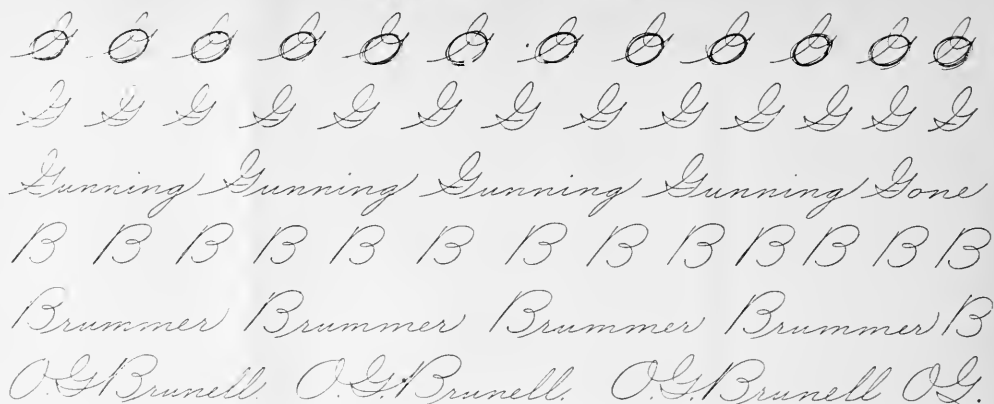 G G G G G G G G G G G G G
Gunning Gunning Gunning Gunning Gone
B B B B B B B B B B B B B
Brummer Brummer Brummer Brummer B
O.G. Brunell. O.G. Brunell. O.G. Brunell O.G.